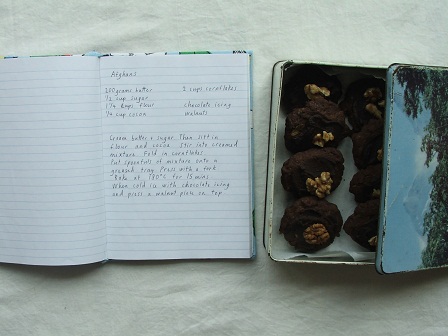 Afghans
200 grams butter
1/2 cup sugar
1 1/4 cups flour
1/4 cup cocoa
2 cups cornflakes
chocolate icing
walnuts
Cream butter & sugar. Then sift in
flour and cocoa. Stir into creamed
mixture. Fold in cornflakes.
Put spoonfuls of mixture onto a
greased tray. Press with a fork
Bake at 180°C for 15 mins
When cold ice with chocolate icing
and press a walnut piece on top